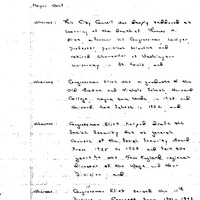 Mayor West
whereas This City Council was deeply saddened at
learning of the death of Thomas H.
Eliot a former US Congressman, lawyer,
professor, political scientist and
retired Chancellor at Washington
University in St. Louis, and
whereas Congressman Eliot was a graduate of the
and Nichols School Harvard
College, magna cum laude in 1928 and
Harvard Law School in 1932, and
whereas Congressman Eliot helped draft the
Social Security Act as general
Counsel of the Social Security Board
from 1935 to 1938 and
years he was New England regional
director of the Wage and Hour
Division and
whereas Congressman Eliot served the
District in Congress from 1941-1943